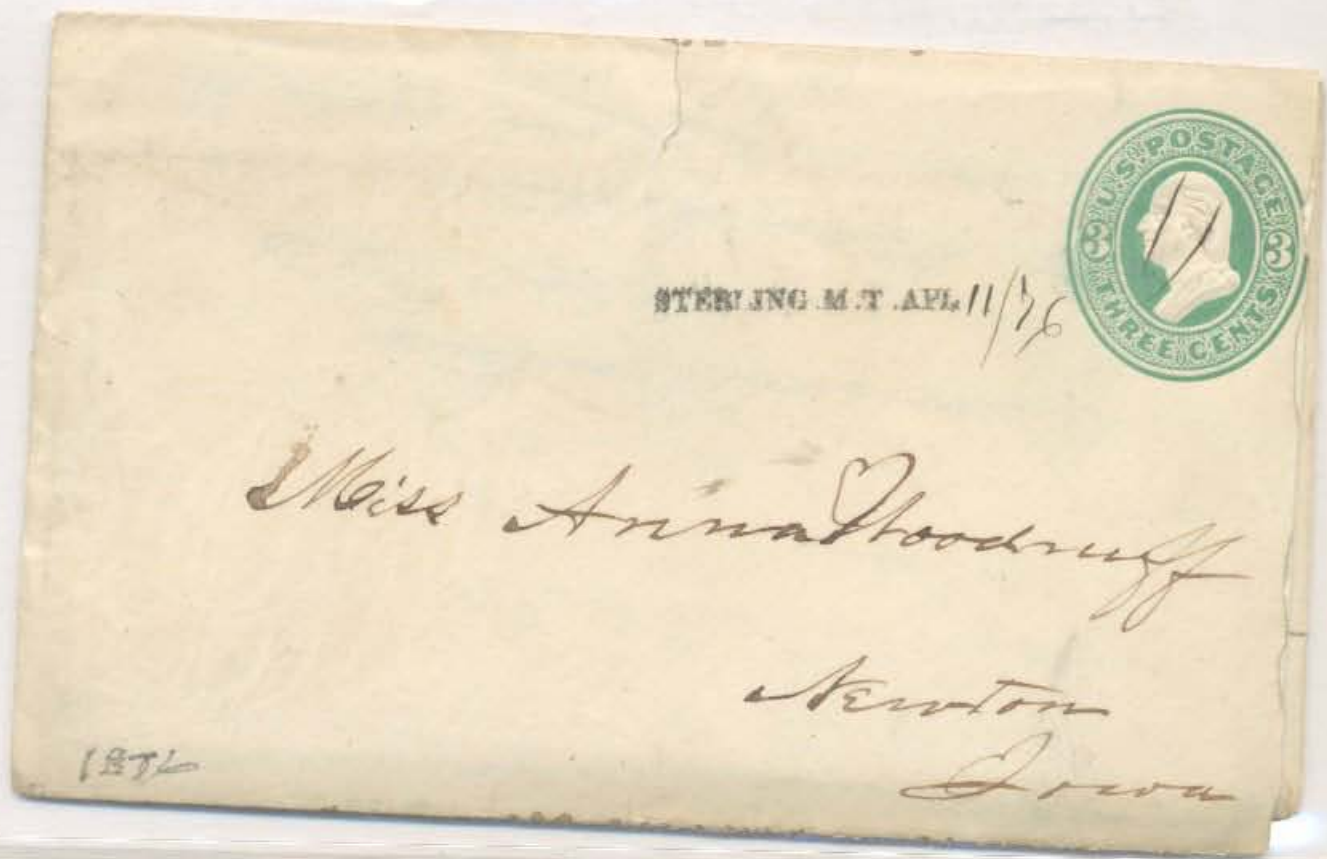 U.S. POSTAGE
3 3
THREE CENTS
STERLING .M.T .APL 11/76
Miss Anna Woodruff
Newton
Iowa